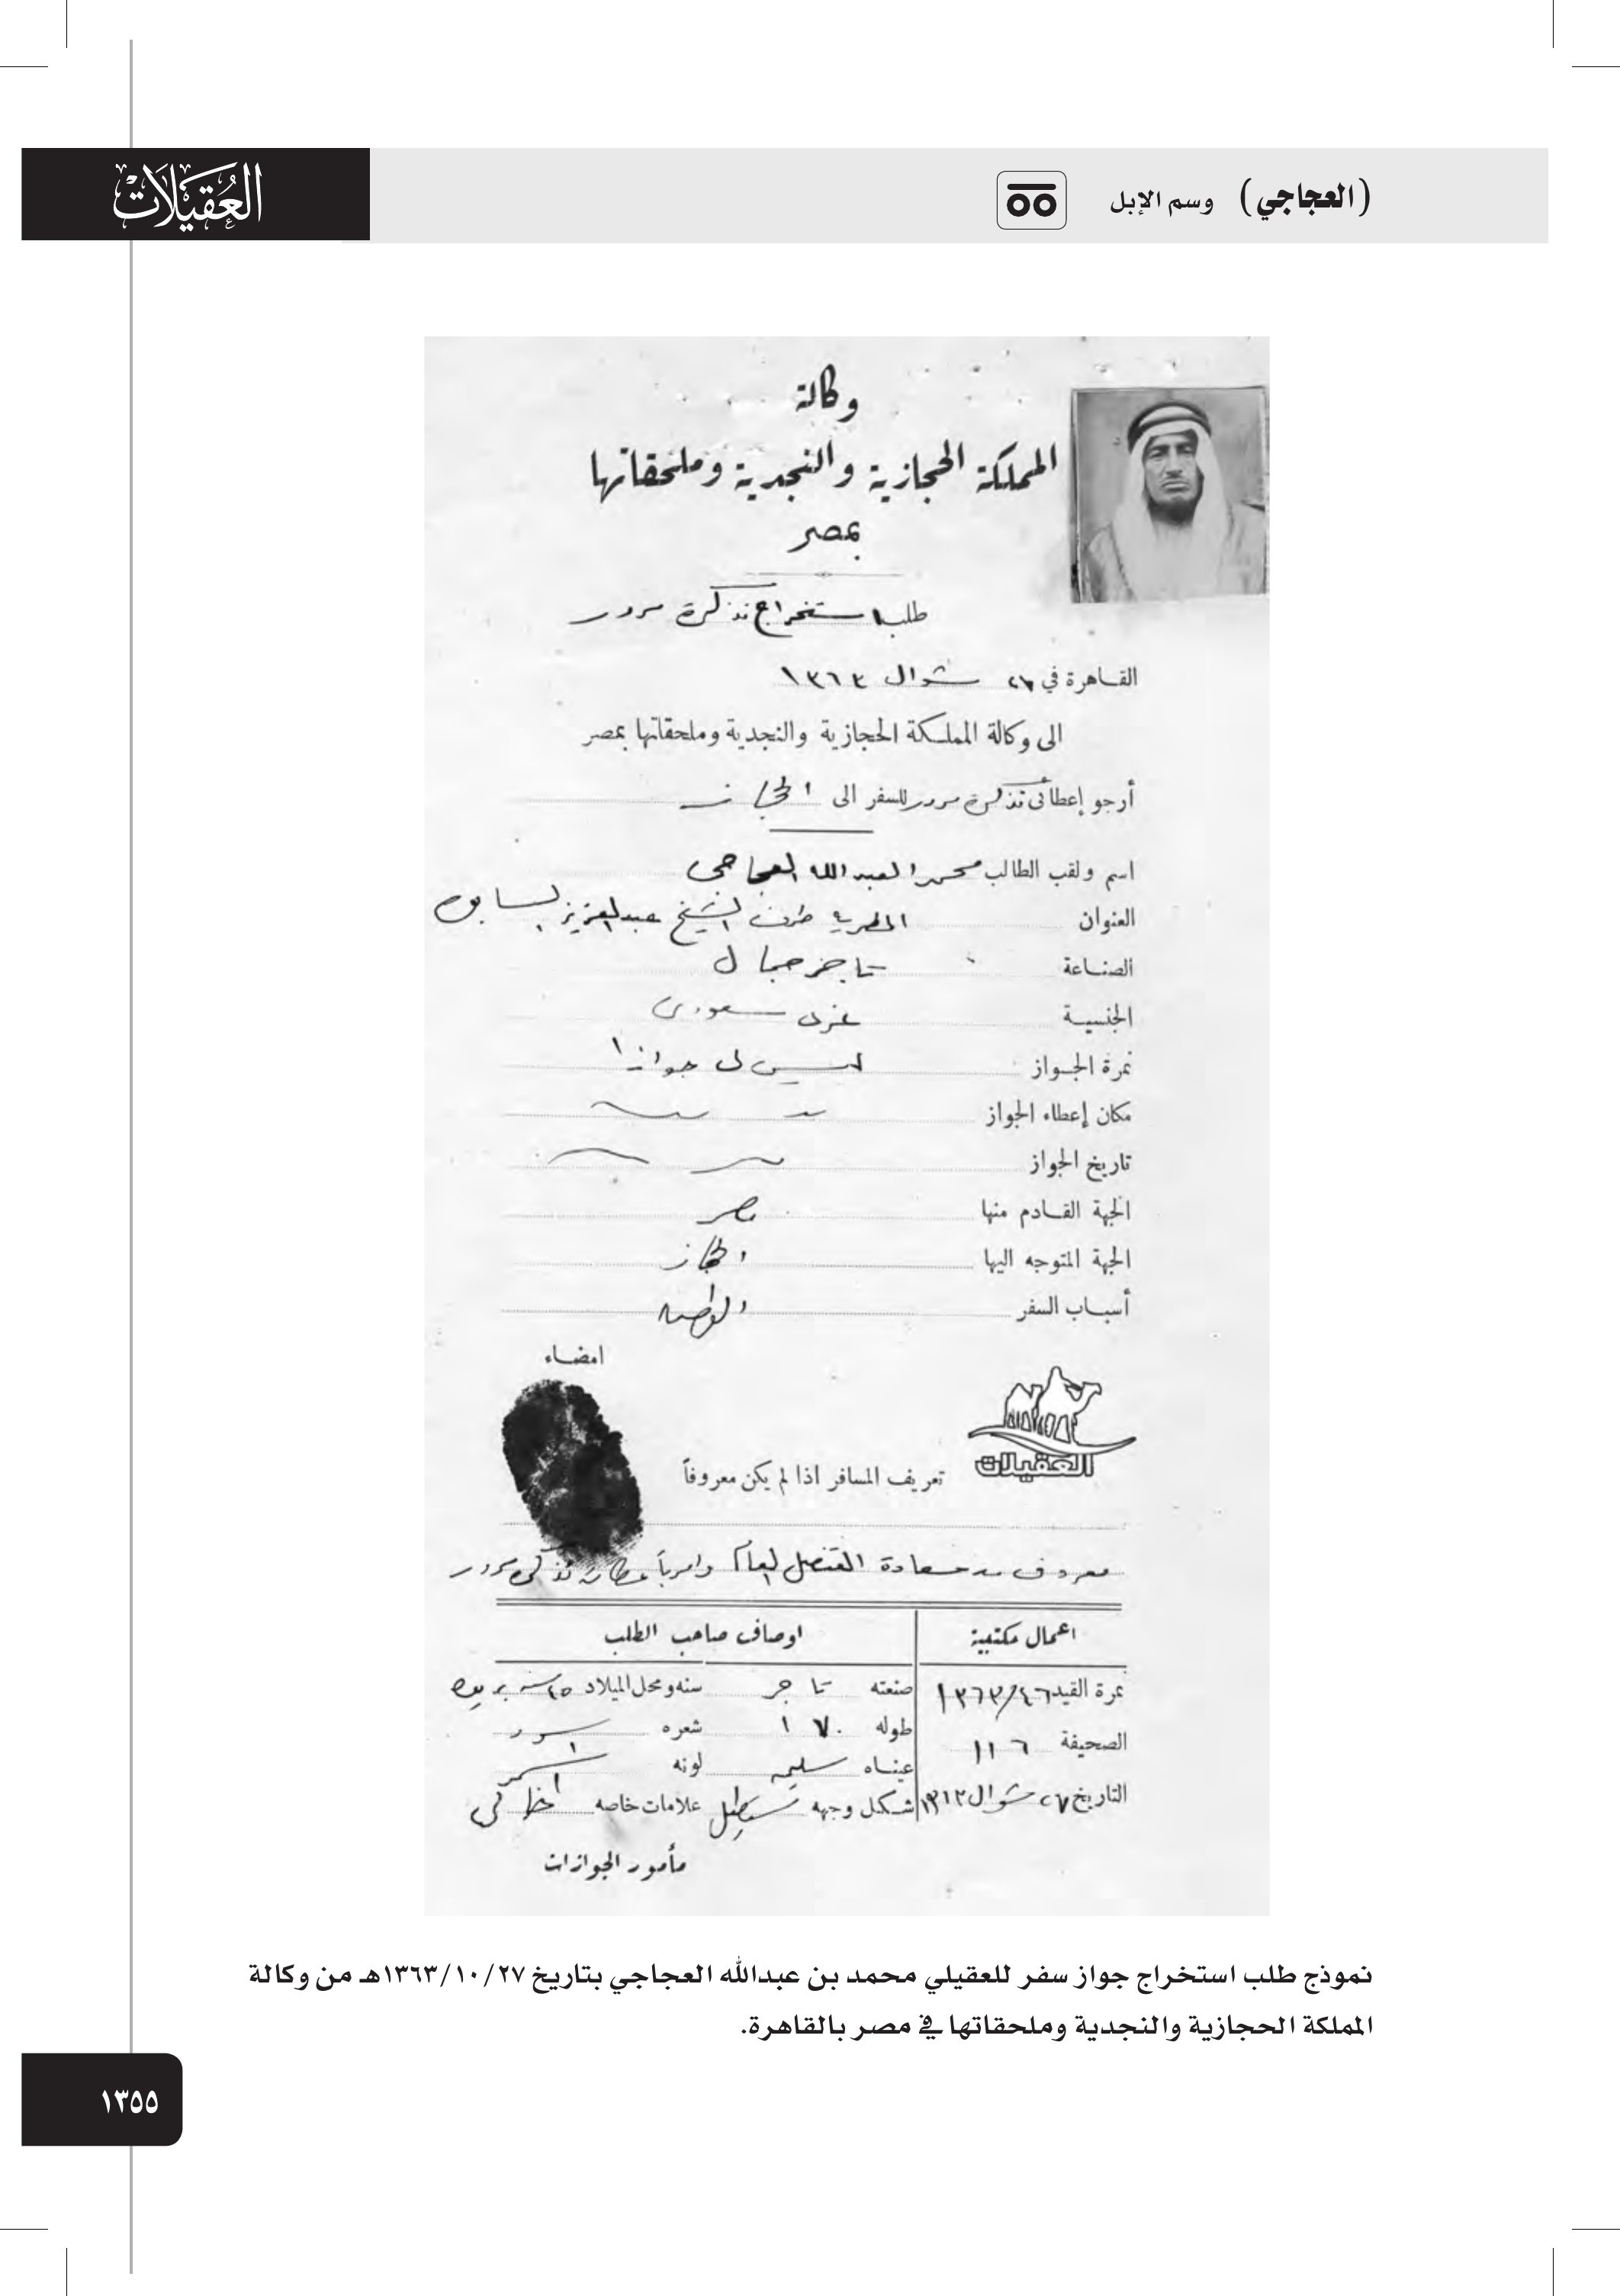 العقيلات
(العجاجي) وسم الإبل
وكالة
المملكة الحجازية والنجدية وملحقاتها
بمصر
طلب استخراج تذكرة مرور
القاهرة في ٢٧ شوال ١٣٦٣
الى وكالة المملكة الحجازية والنجدية وملحقاتها بمصر
أرجو إعطائى تذكرة مرور للسفر الى الحجاز
اسم ولقب الطالب محمد العبدالله العجاجى
العنوان المطرية طرف الشيخ عبدالعزيز السابق
الصناعة تاجر جمال
الجنسية سعودى
نمرة الجواز ليس لى جواز
مكان إعطاء الجواز
تاريخ الجواز
الجهة القادم منها مصر
الجهة المتوجه اليها الحجاز
أسباب السفر
امضاء
العقيلات
تعريف المسافر اذا لم يكن معروفاً
معروف سعادة القنصل العام تذكرة مرور
اعمال مكتبية
اوصاف صاحب الطلب
نمرة القيد ١٣٦٣/٤٦ صنعته تاجر سنه ومحل الميلاد ٤٥ سنة بريده
الصحيفة ١١٦ طوله ١٧٠ شعره اسود
عيناه سليمه لونه اسمر
التاريخ ٢٧ شوال شكل وجهه مستطيل علامات خاصه
مأمور الجوازات
نموذج طلب استخراج جواز سفر للعقيلي محمد بن عبدالله العجاجي بتاريخ ١٣٦٣/١٠/٢٧هـ من وكالة
المملكة الحجازية والنجدية وملحقاتها في مصر بالقاهرة.
١٣٥٥